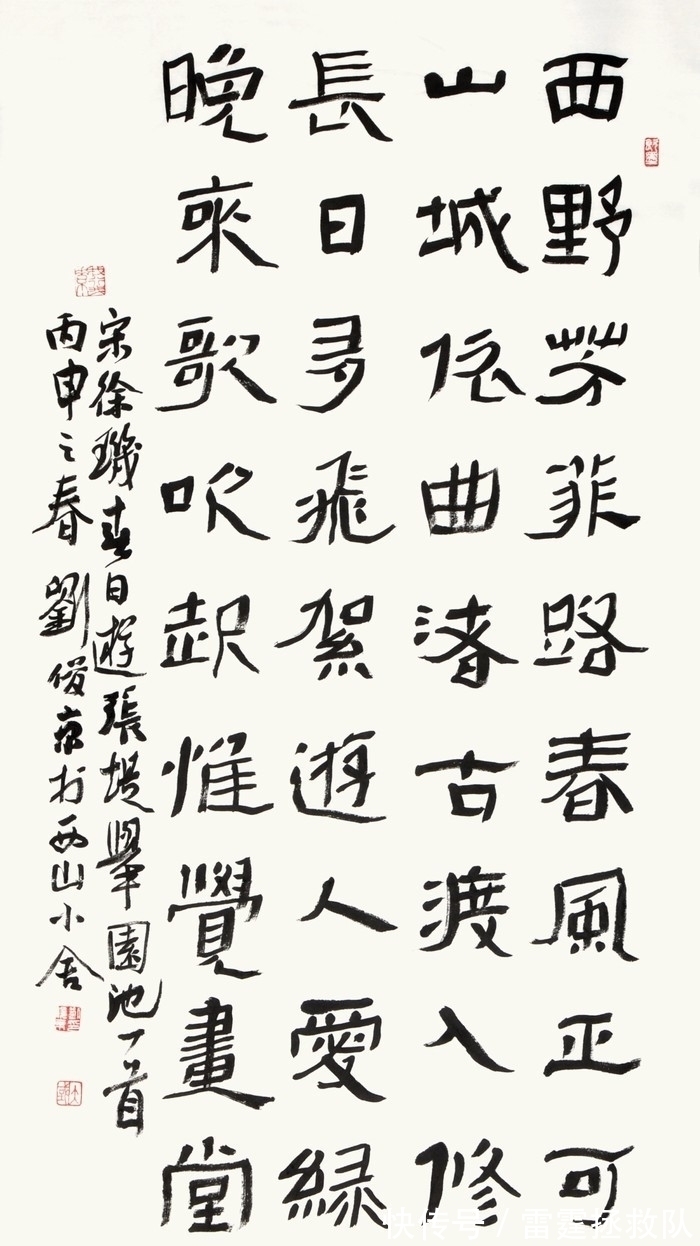 西野芳菲路春風正可
山城依曲渚古渡入修
長日多飛絮遊人愛緑
晚來歌吹起惟覺畫堂
宋徐璣春日遊張提舉園池一首
丙申之春劉俊京於西山小舍
快传号/雷霆拯救队